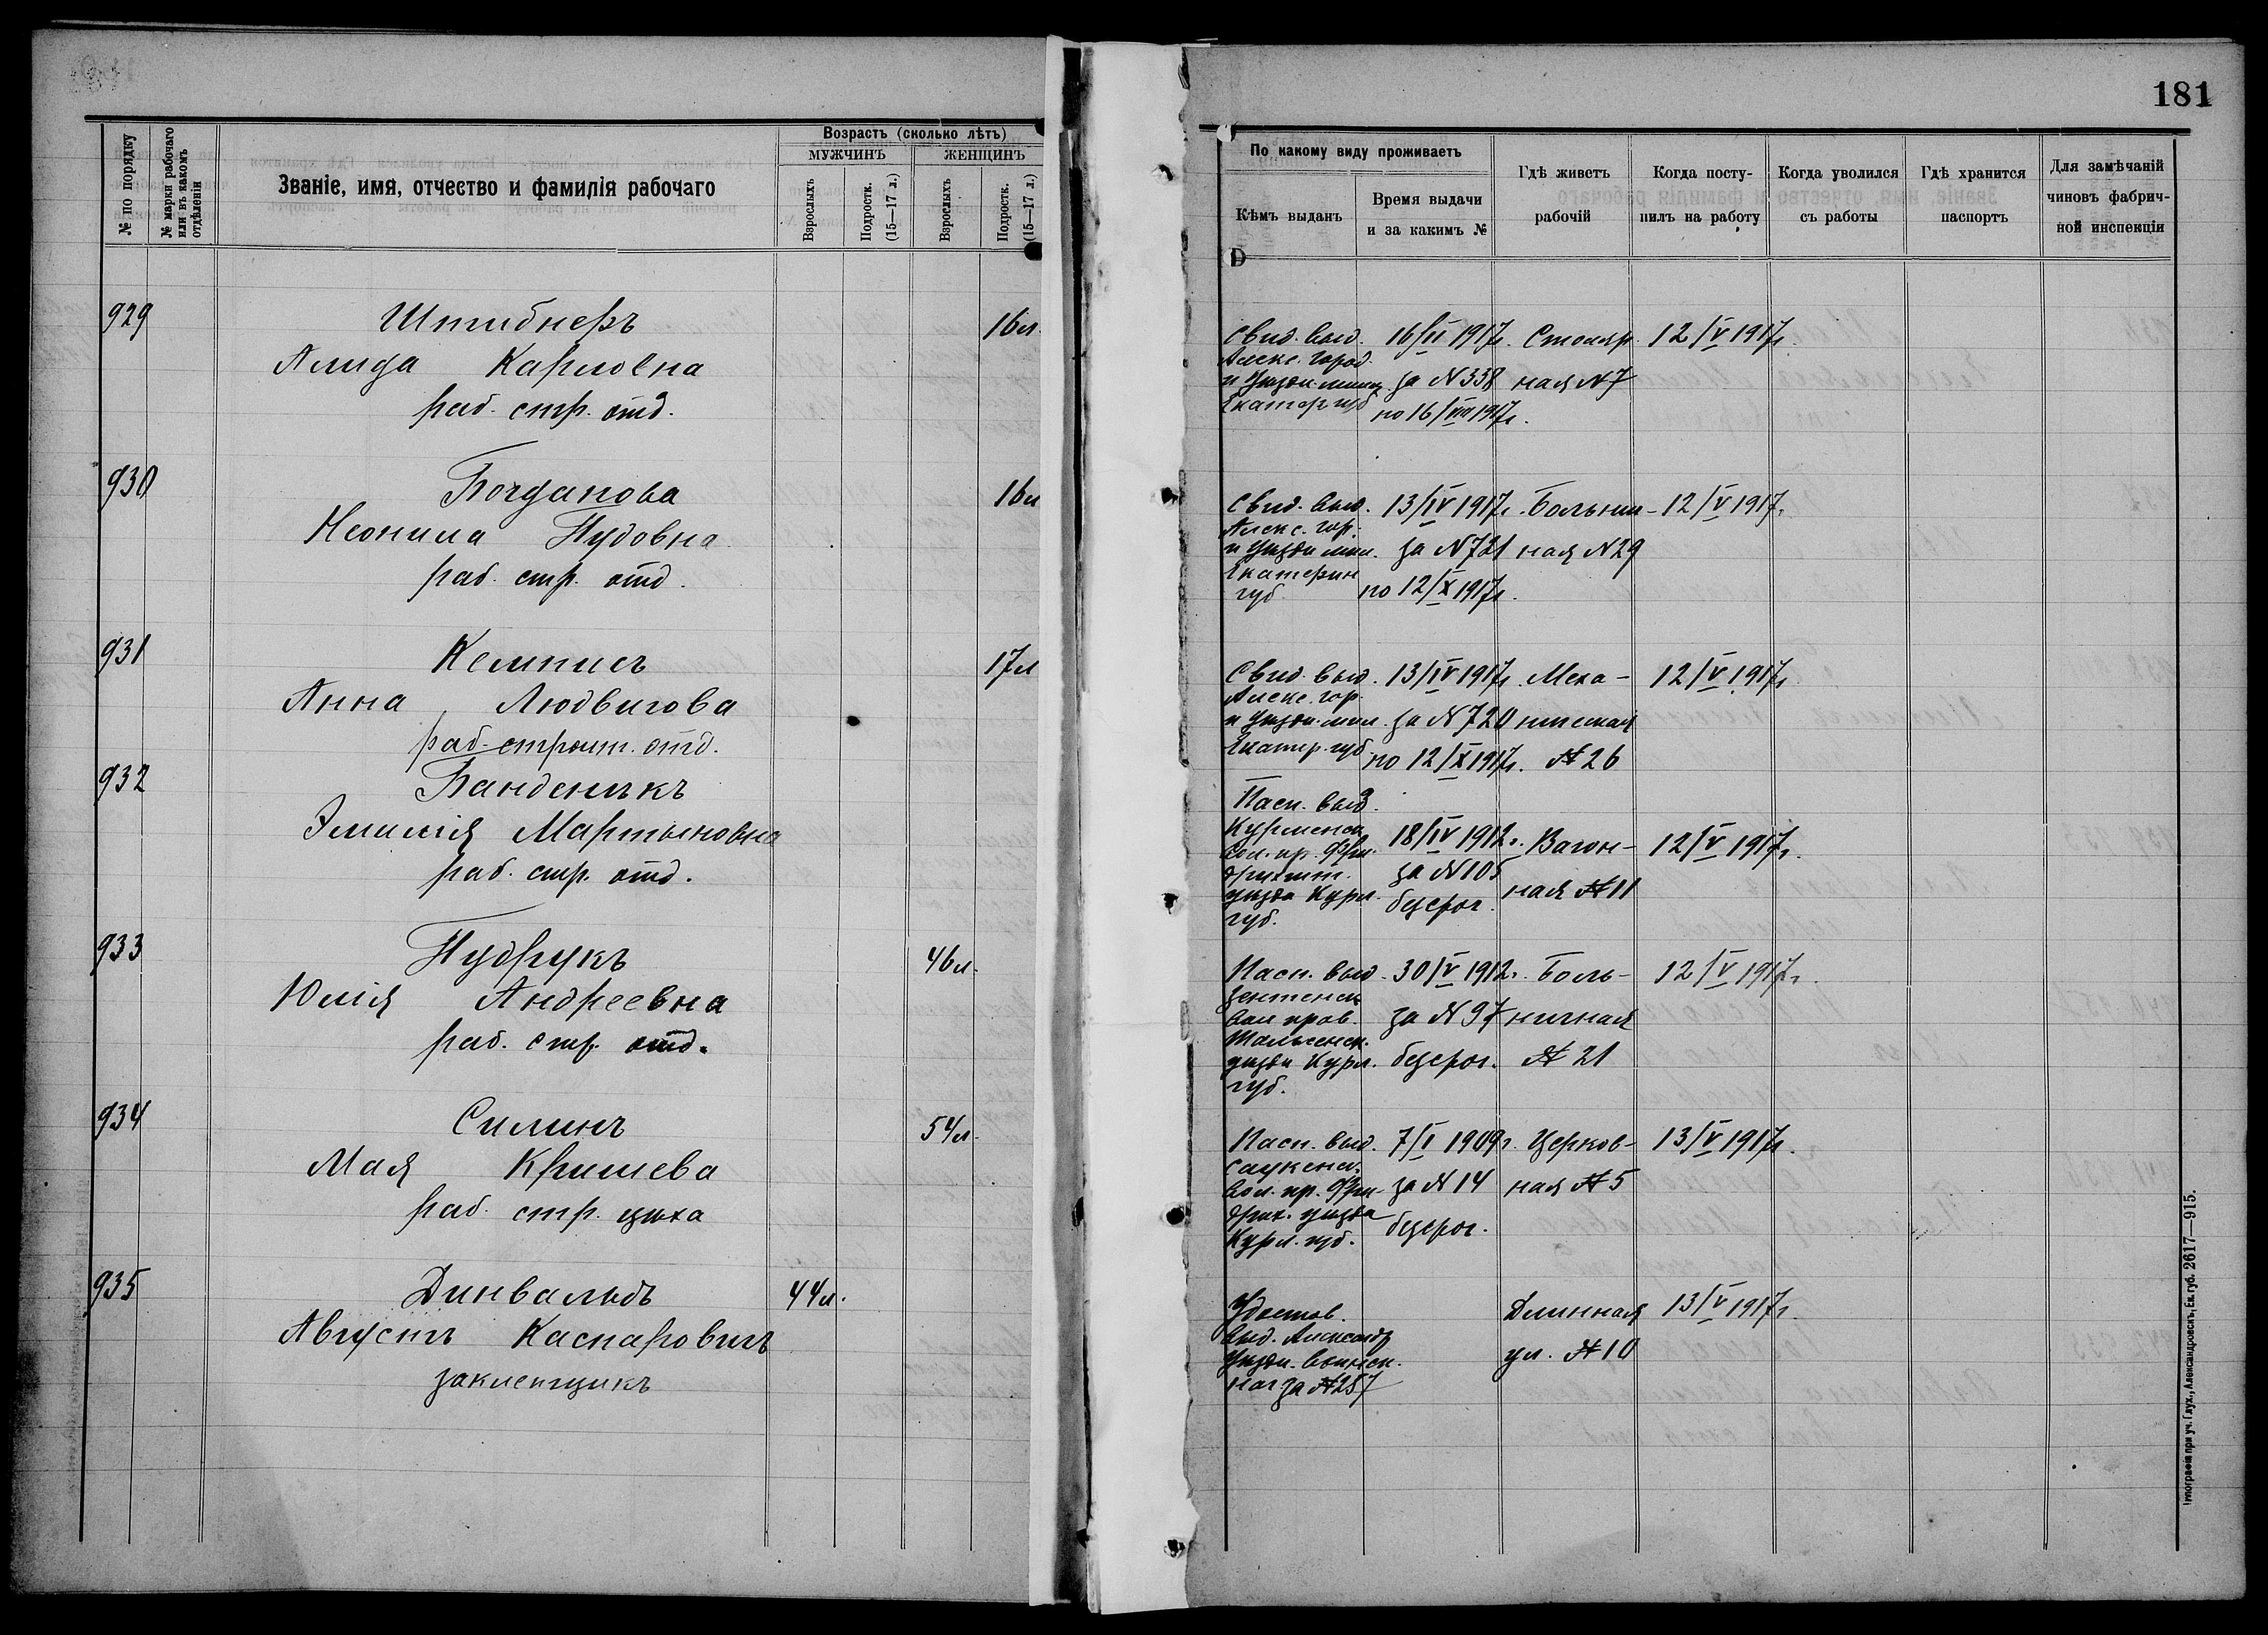 181
№ по порядку
№ марки рабочаго или въ какомъ отдѣленіи
Званіе, имя, отчество и фамилія рабочаго
Возрастъ (сколько лѣтъ)
МУЖЧИНЪ
ЖЕНЩИНЪ
Взрослыхъ
Подростк. (15—17 л.)
Взрослыхъ
Подростк. (15—17 л.)
По какому виду проживаетъ
Кѣмъ выданъ
Время выдачи
и за какимъ №
Гдѣ живетъ
рабочій
Когда посту-
пилъ на работу
Когда уволился
съ работы
Гдѣ хранится
паспортъ
Для замѣчаній
чиновъ фабрич-
ной инспекціи
929
Штибнеръ
Алида Карловна
раб. стр. отд.
16 л.
Свид. выд.
Алекс. город.
и Уѣздн. милиц.
Екатер. губ.
16/II 1917г.
за N 338
по 16/VIII 1917г.
Столяр
ная N 7
12/V 1917г.
930
Богданова
Неонила Іудовна
раб. стр. отд.
16 л
Свид. выд.
Алекс. гор.
и Уѣздн. мил.
Екатерин
губ.
13/IV 1917г.
за N 721
по 12/X 1917г.
Больнич-
ная N 29
12/V 1917г.
931
Кемписъ
Анна Людвигова
раб. строит. отд.
17 л
Свид. выд.
Алекс. гор.
и Уѣздн. мил.
Екатер. губ.
13/IV 1917г.
за N 720
по 12/X 1917г.
Меха-
ническая
№ 26
12/V 1917г.
932
Эмилія Мартыновна
раб. стр. отд.
Пасп. выд.
вол. пр. Фри-
уѣзда Курл.
губ.
18/IV 1912г.
за N 105
безсроч.
Вагон-
ная № 11
12/V 1917г.
933
Пудрукъ
Юлія Андреевна
раб. стр. отд.
46 л.
Пасп. выд.
вол. пров.
Тальсенск.
уѣзда Курл.
губ.
30/V 1912г.
за N 97
безсроч.
Боль-
ничная
№ 21
12/V 1917г.
934
Силинъ
Мая Кришева
раб. стр. цеха
54 л.
Пасп. выд.
вол. пр. Фри-
дрих. уѣзда
Курл. губ.
7/I 1909г.
за N 14
безсроч.
Церков-
ная № 5
13/V 1917г.
935
Динвальдъ
Августъ Каспаровичъ
заклепщикъ
44 л.
Удостов.
выд. Александр
Уѣздн. воинск.
нач за № 257
Длинная
ул. № 10
13/V 1917г.
Типографія при уч. Глух., Александровскъ, Ек. губ. 2617—915.